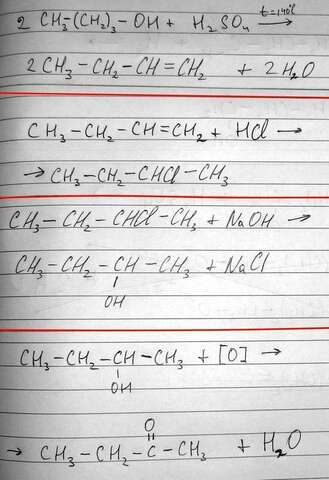 2 CH₃-(CH₂)₃-OH + H₂SO₄ t=140° →
2 CH₃-CH₂-CH=CH₂ + 2H₂O
CH₃-CH₂-CH=CH₂ + HCl →
→ CH₃-CH₂-CHCl-CH₃
CH₃-CH₂-CHCl-CH₃ + NaOH →
CH₃-CH₂-CH-CH₃ + NaCl
OH
CH₃-CH₂-CH-CH₃ + [O] →
OH
O
→ CH₃-CH₂-C-CH₃ + H₂O